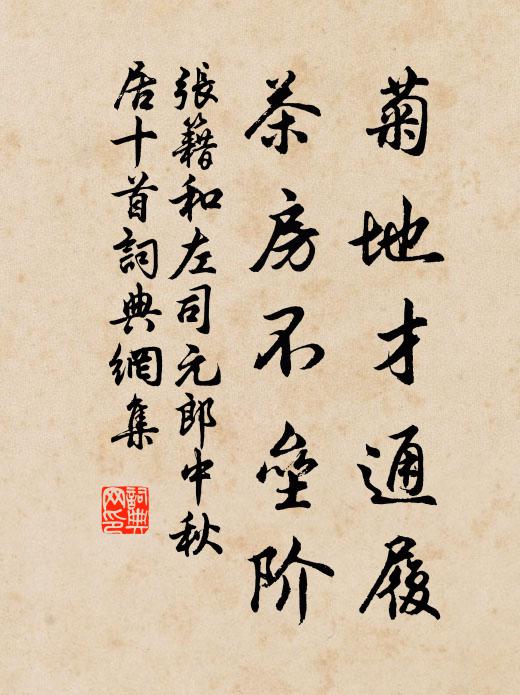 菊地才通履
茶房不垒阶
張籍和左司元郎中秋
居十首詞典網集
詞典网印